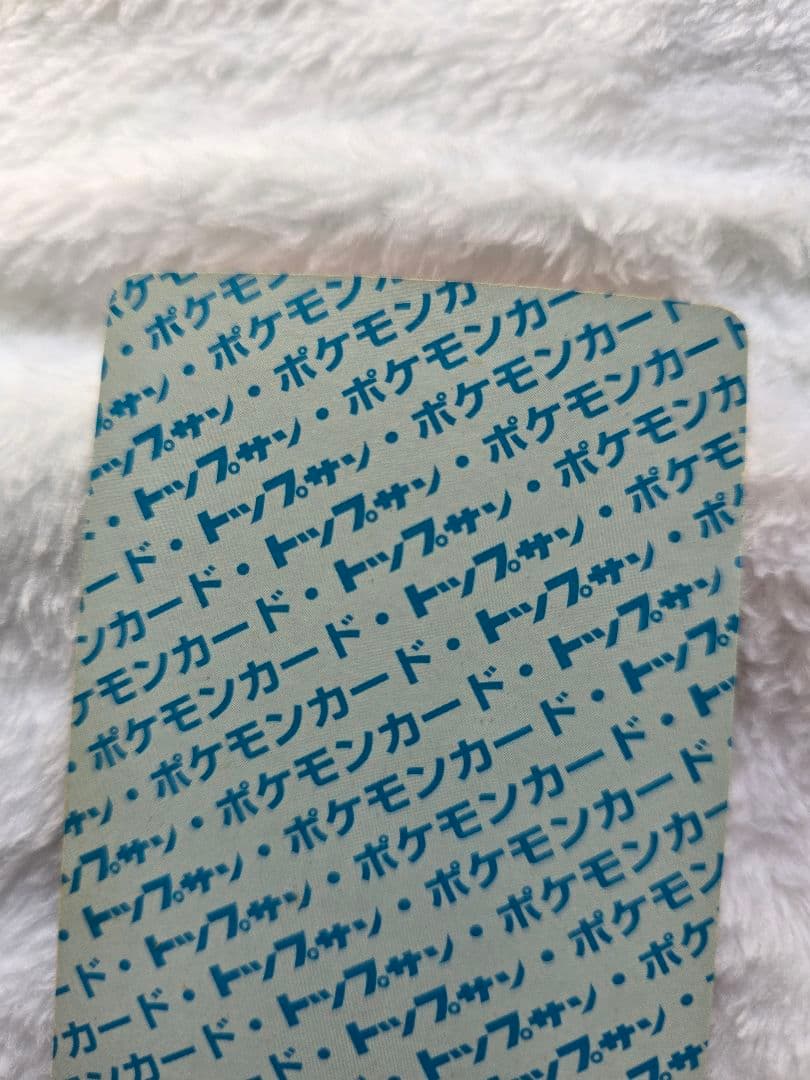 ケモ
・ポケモ
プサン・ポケモン
ップサン・ポケモンカ
・トップサン・ポケモンカー
ード・トップサン・ポケモンカード
ンカード・トップサン・ポケモンカード
ケモンカード・トップサン・ポケモンカ
・ポケモンカード・トップサン・ポケモ
サン・ポケモンカード・トップサン・ポ
ップサン・ポケモンカード・トップサン・
・トップサン・ポケモンカード・トップサ
ード・トップサン・ポケモンカード・トッ
カード・トップサン・ポケモンカード・
ンカード・トップサン・ポケモンカー
ド・トップサン・ポケモン
トップサン・ポケ
プサン・
サ